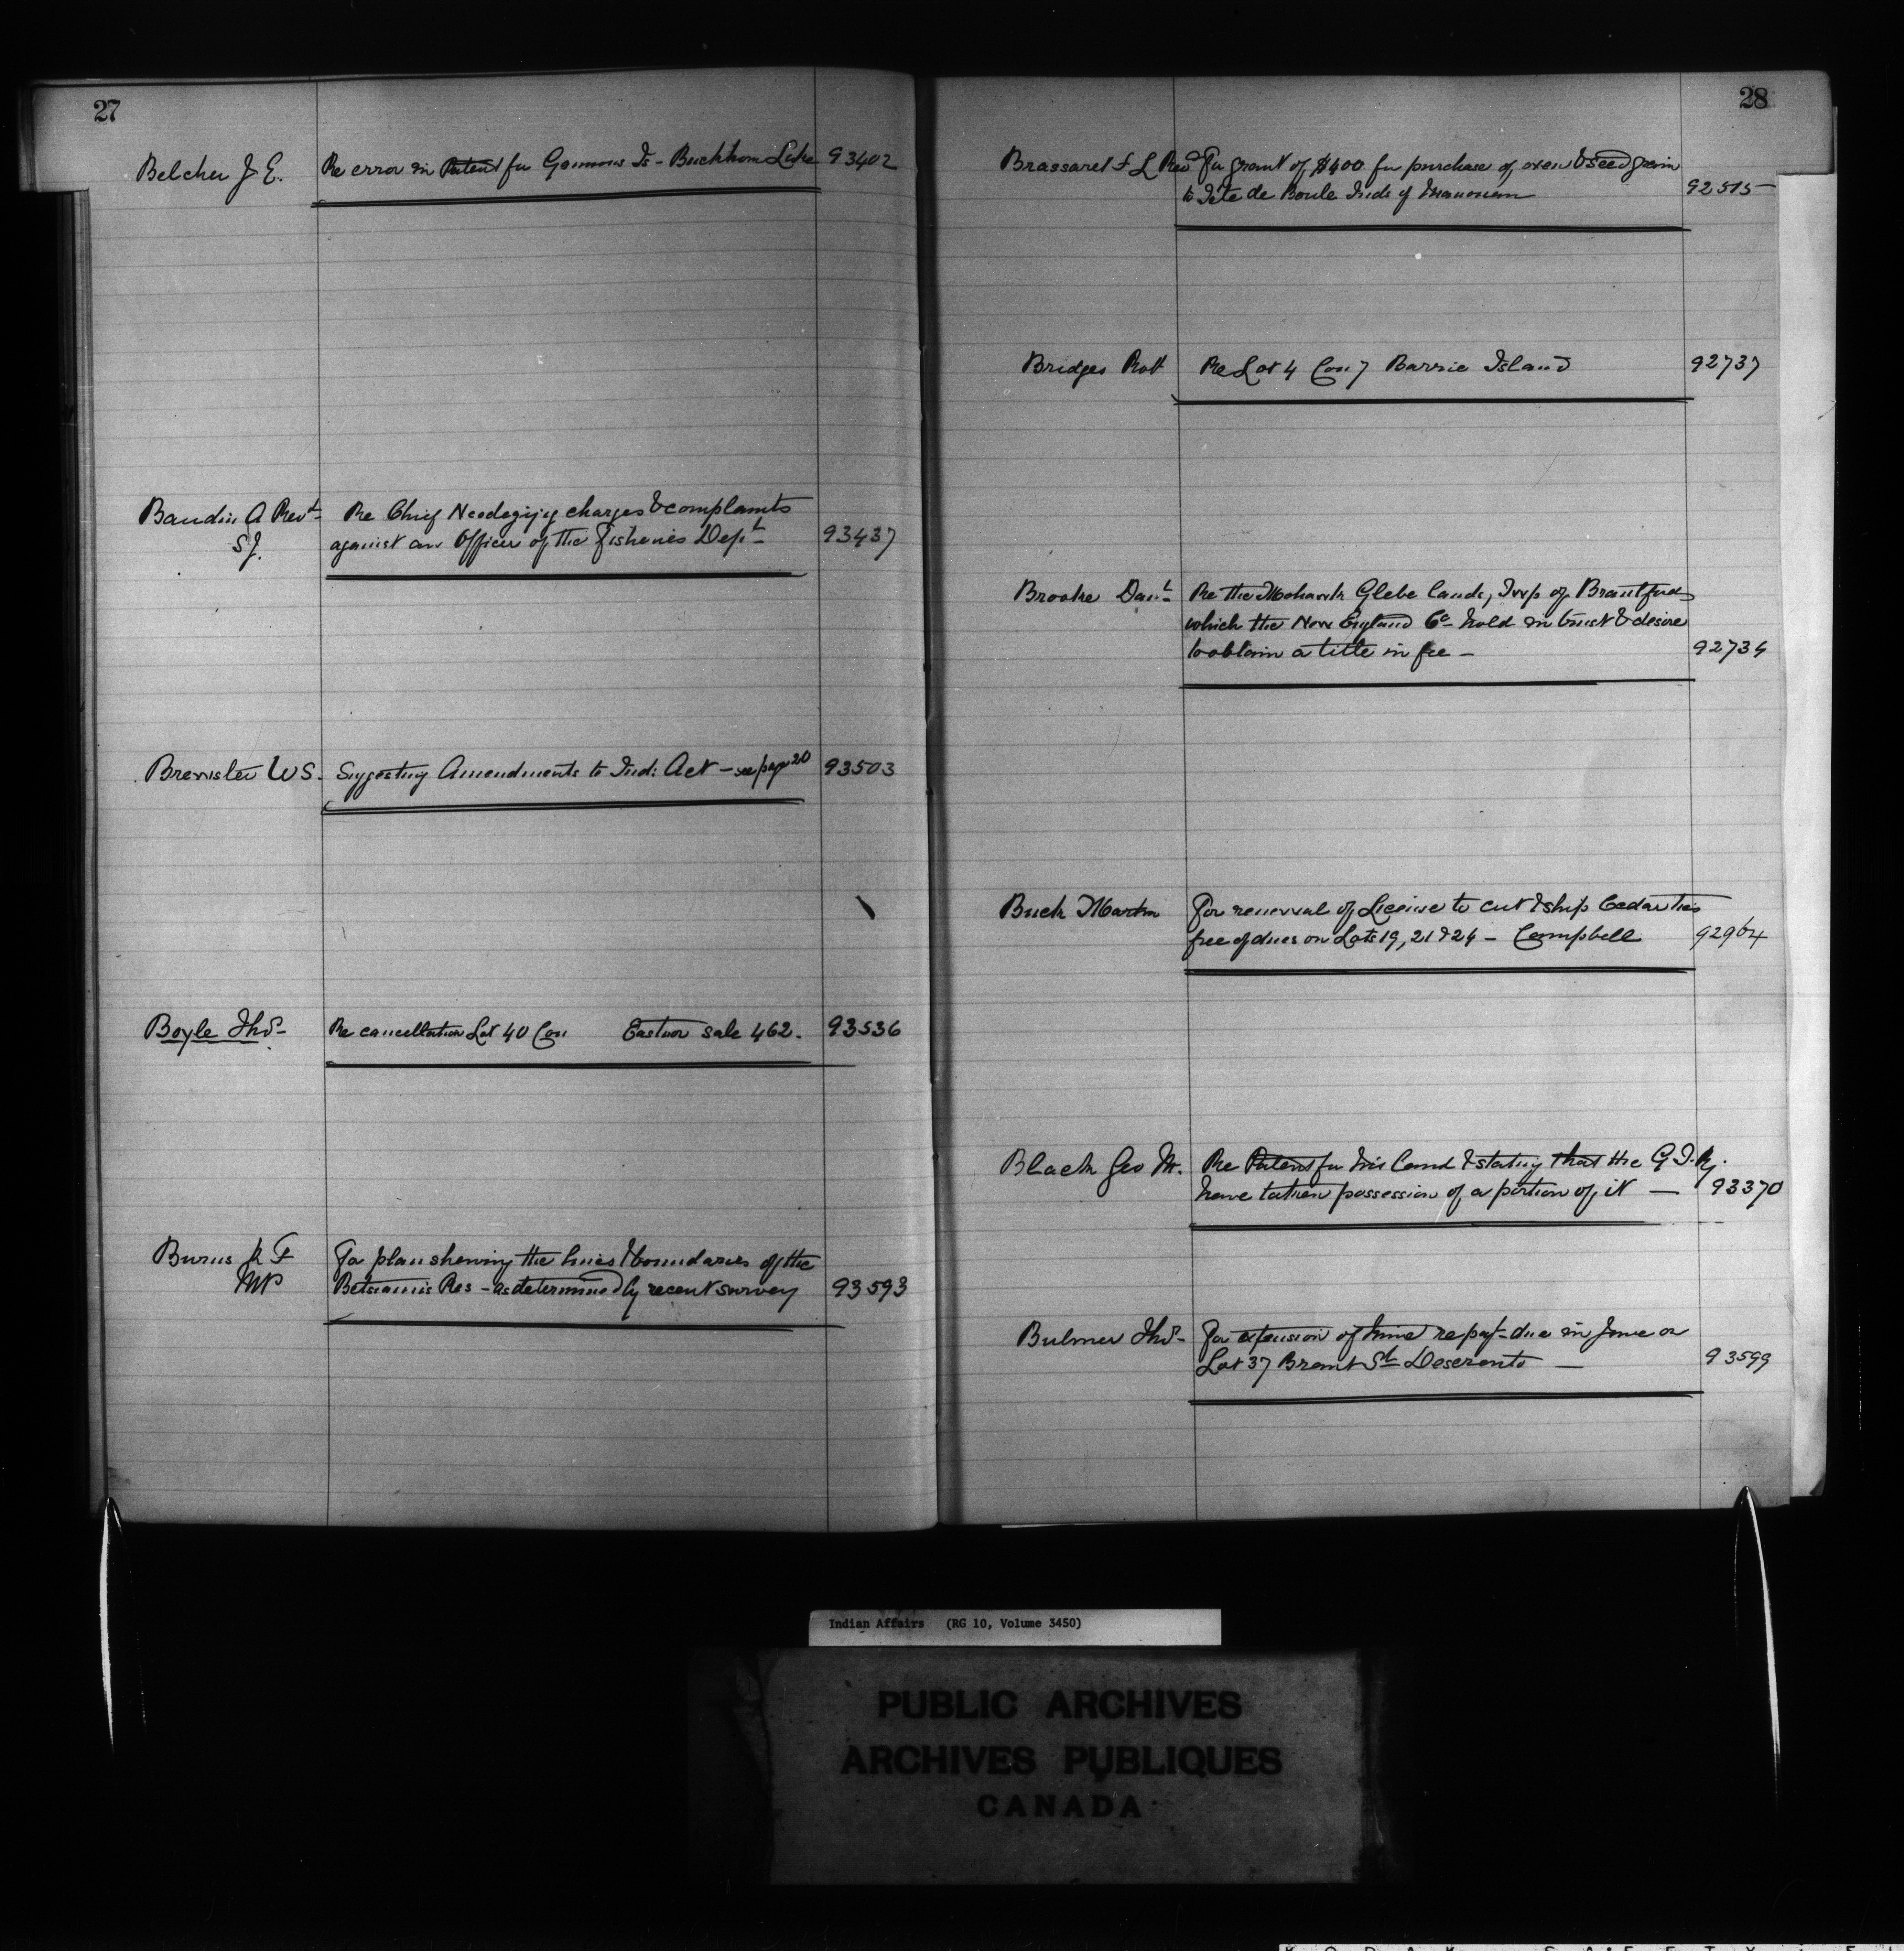 27
Belcher J. E. Re error in Patent for Gannons Is - Buckhorn Lake 93402
Baudin A Revd Re Chief Neodegijig charges & complaints
S.J. against an Officer of the Fisheries Dept 93437
Brewster W S. Suggesting Amendments to Ind: Act - see page 20 93503
Boyle Thos Re cancellation Lot 40 Con Eastnor sale 462. 93536
Burns K F For plan shewing the lines & boundaries of the
MP Betsiamis Res - as determined by recent survey 93593
28
Brassard F L Revd For grant of $400 for purchase of oxen & seed grain
to Tête de Boule Inds of 92515
Bridges Robt Re Lot 4 Con 7 Barrie Island 92737
Brooke Danl Re the Mohawk Glebe lands, Twp of Brantford
which the New England Co hold in trust & desire
to obtain a title in fee - 92734
Buck Martin For renewal of License to cut & ship Cedar ties
free of dues on Lots 19, 21 & 24 - Campbell 92964
Black Geo M. Re Patent for his land & stating that the G.T.Ry.
have taken possession of a portion of it — 93370
Bulmer Thos For extension of time re payt due in June on
Lot 37 Brant St Deseronto — 93599
Indian Affairs (RG 10, Volume 3450)
PUBLIC ARCHIVES
ARCHIVES PUBLIQUES
CANADA